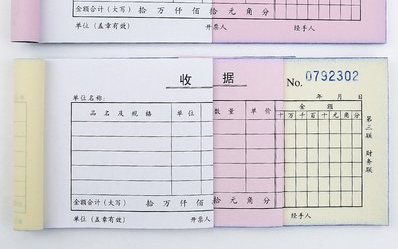 金额合计（大写） 拾 万 仟 佰 拾 元 角 分
单位（盖章有效） 开票人 经手人
收 据 No. 0792302
单位名称： 年 月 日
品 名 及 规 格 单位 数量 单价 金 额
十 万 千 百 十 元 角 分
第三联 财务联
金额合计（大写） 拾 万 仟 佰 拾 元 角 分
单位（盖章有效） 开票人 经手人